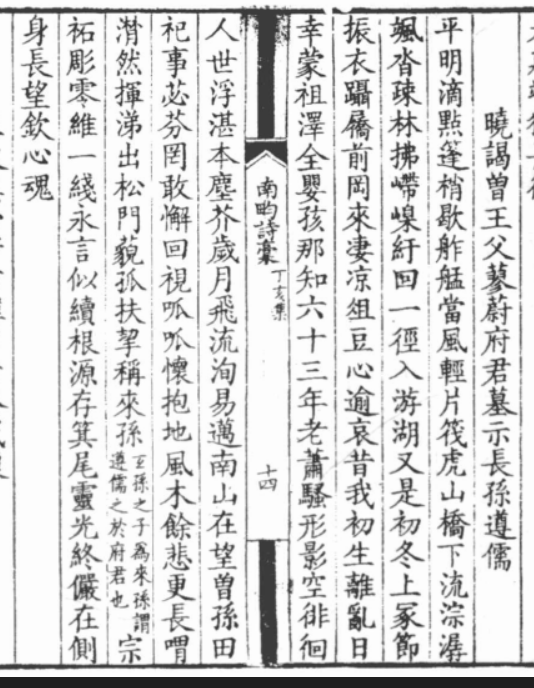 曉謁曾王父蓼蔚府君墓示長孫遵儒
平明滴點篷梢歇舴艋當風輕片筏虎山橋下流淙潺
颯沓疎林拂嵽嵲紆回一徑入游湖又是初冬上冢節
振衣躡屩前岡來淒涼俎豆心逾哀昔我初生離亂日
幸蒙祖澤全嬰孩那知六十三年老蕭騷形影空徘徊
南畇詩稾 丁亥集 十四
人世浮湛本塵芥歲月飛流洵易邁南山在望曾孫田
祀事苾芬罔敢懈回視呱呱懷抱地風木餘悲更長喟
潸然揮涕出松門藐孤扶挈稱來孫
互孫之子為來孫謂
遵儒之於府君也
宗
祏彫零維一綫永言似續根源存箕尾靈光終儼在側
身長望欽心魂